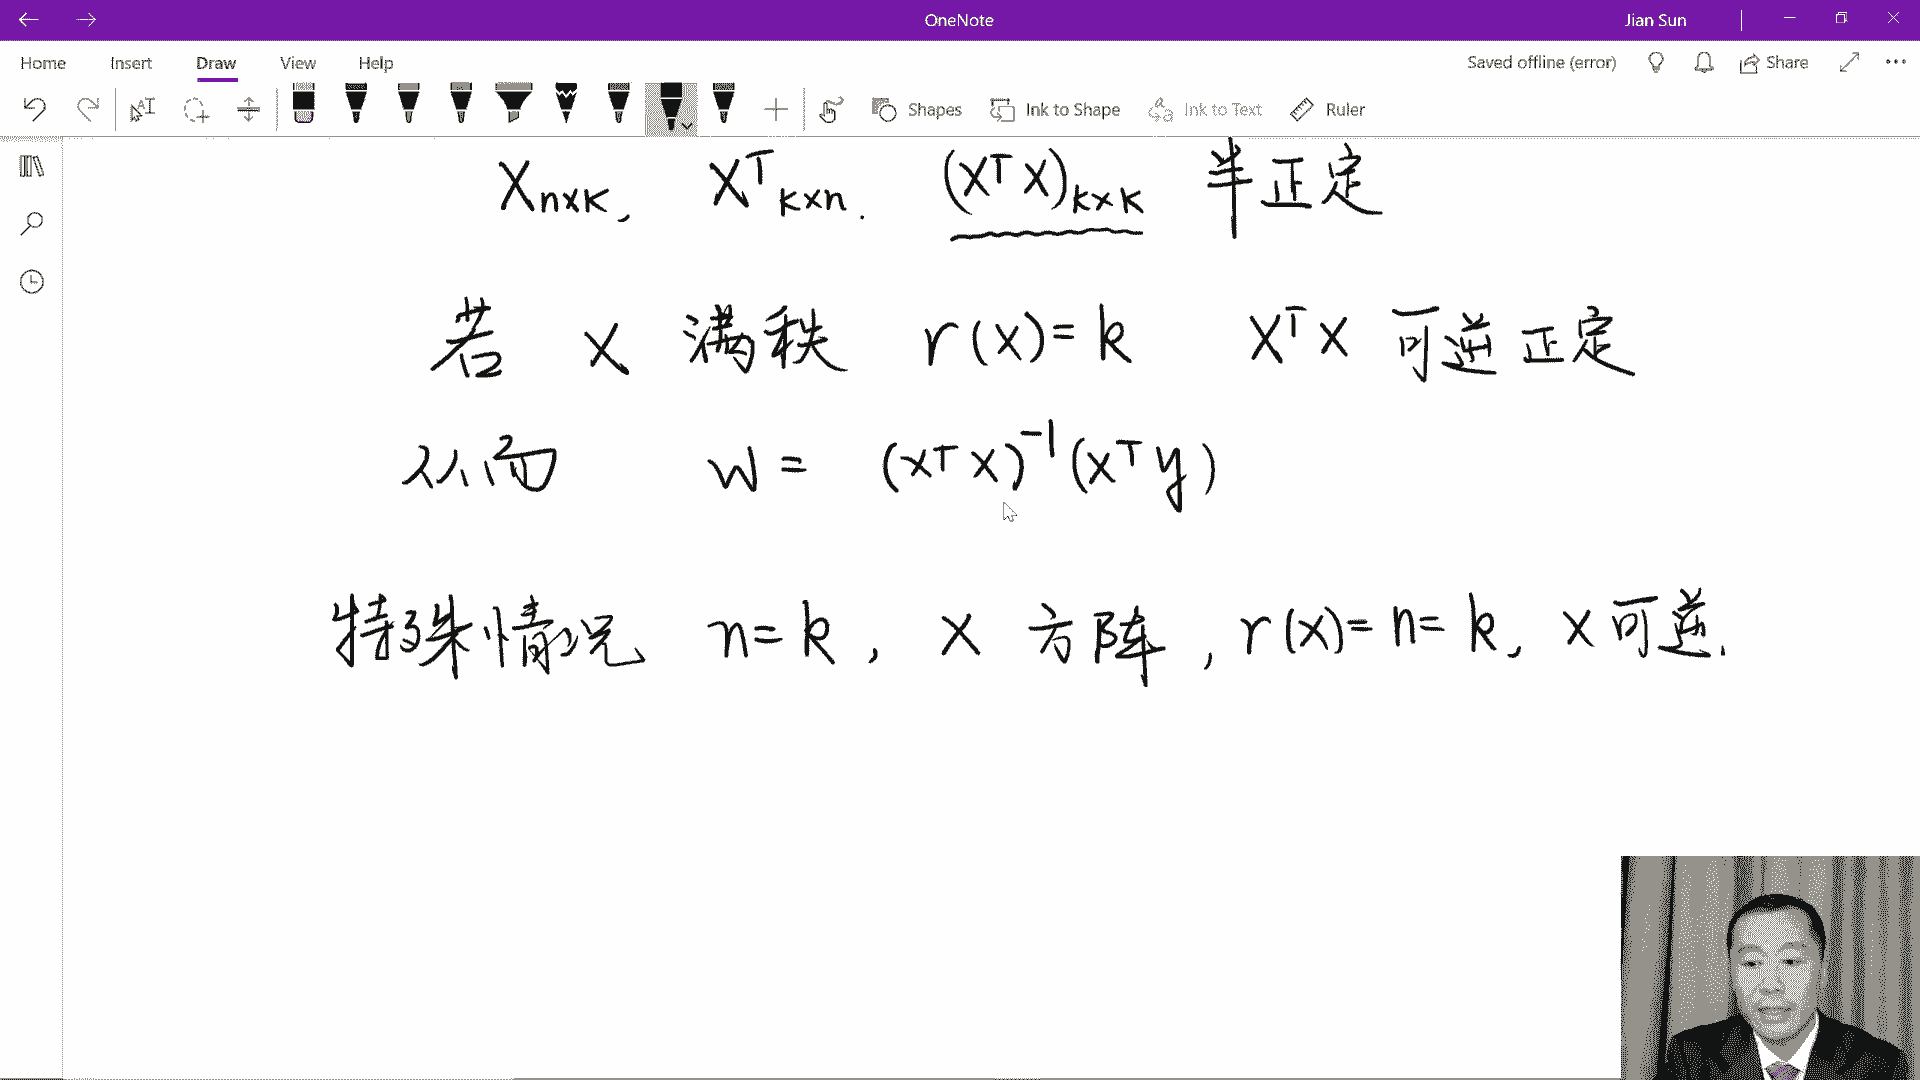 OneNote
Jian Sun
Home Insert Draw View Help
Saved offline (error) Share
Shapes Ink to Shape Ink to Text Ruler
X_{n×k}, X^T_{k×n}. (X^T X)_{k×k} 半正定
若 X 满秩 r(X)=k X^T X 可逆正定
从而 w = (X^T X)^{-1} (X^T y)
特殊情况 n=k, X 方阵, r(X)=n=k, X 可逆.